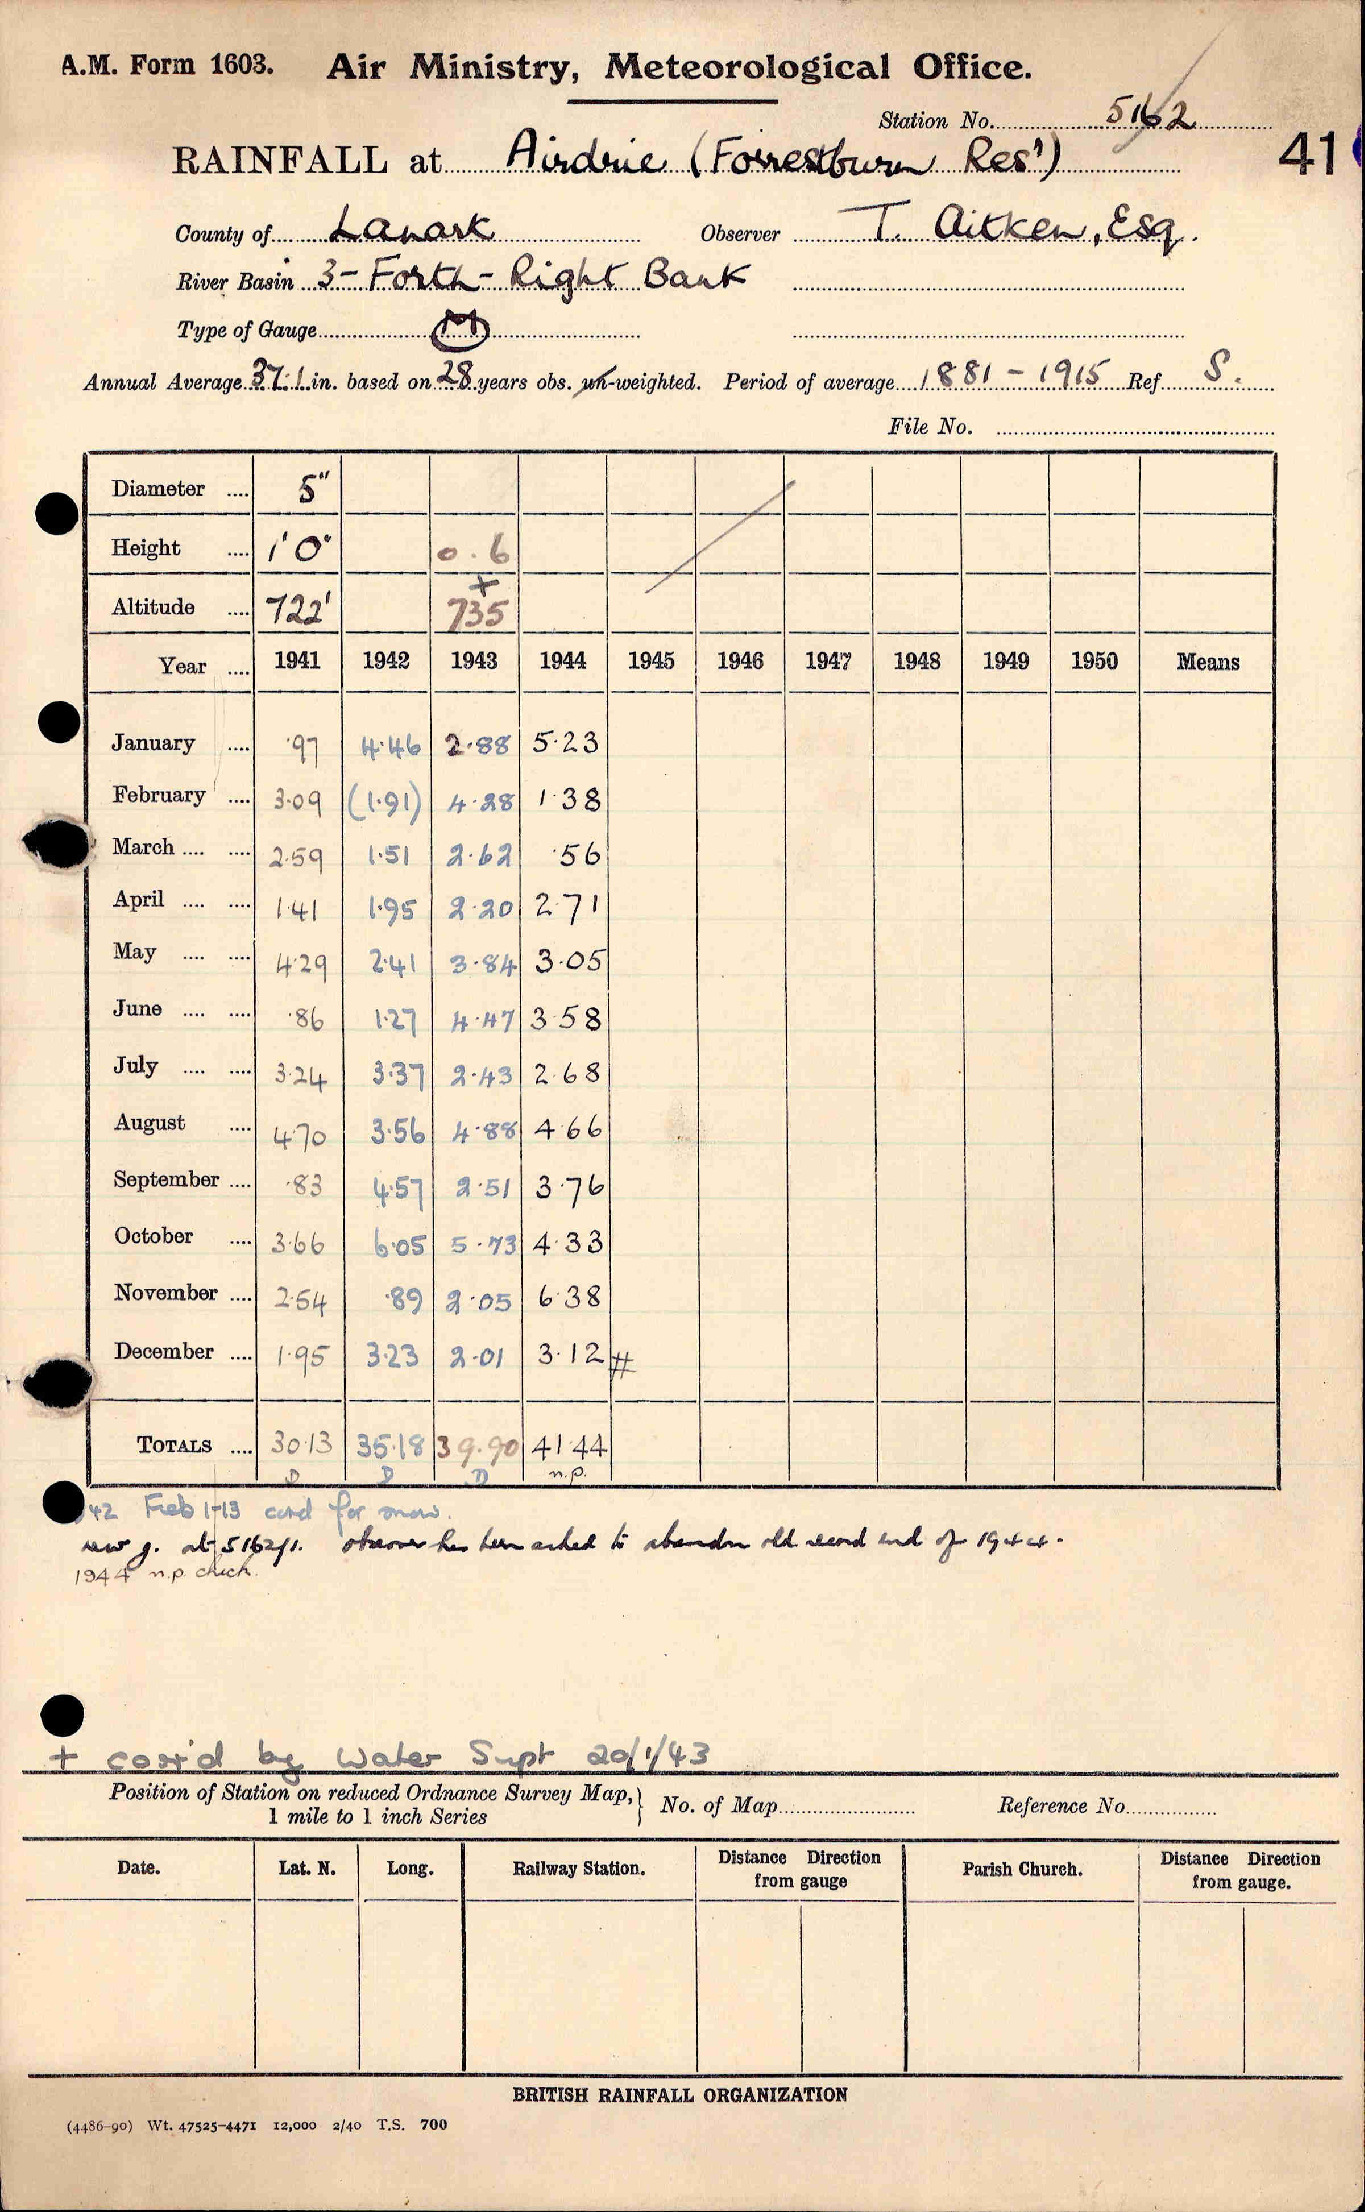 A.M. Form 1603. Air Ministry, Meteorological Office.
Station No. 5162
41
RAINFALL at Airdrie (Forrestburn Resr)
County of Lanark Observer T. Aitken, Esq.
River Basin 3 - Forth - Right Bank
Type of Gauge M
Annual Average 37.1 in. based on 28 years obs. un-weighted. Period of average 1881 - 1915 Ref S.
File No.
Diameter .... 5"
Height .... 1'0" 0.6
+
Altitude .... 722' 735
Year .... 1941 1942 1943 1944 1945 1946 1947 1948 1949 1950 Means
January .... .97 4.46 2.88 5.23
February .... 3.09 (1.91) 4.28 1.38
March .... .... 2.59 1.51 2.62 .56
April .... .... 1.41 1.95 2.20 2.71
May .... .... 4.29 2.41 3.84 3.05
June .... .... .86 1.27 4.47 3.58
July .... .... 3.24 3.37 2.43 2.68
August .... 4.70 3.56 4.88 4.66
September .... .83 4.57 2.51 3.76
October .... 3.66 6.05 5.73 4.33
November .... 2.54 .89 2.05 6.38
December .... 1.95 3.23 2.01 3.12 #
TOTALS .... 30.13 35.18 39.90 41.44
D D D n.p.
42 Feb 1-13 cord for snow.
new g. at 5162/1. observer has been asked to abandon old record end of 1944.
1944 n.p. check.
+ corr'd by Water Supt 20/1/43
Position of Station on reduced Ordnance Survey Map, } No. of Map Reference No.
1 mile to 1 inch Series
Date. Lat. N. Long. Railway Station. Distance Direction from gauge Parish Church. Distance Direction from gauge.
BRITISH RAINFALL ORGANIZATION
(4486-90) Wt. 47525-4471 12,000 2/40 T.S. 700